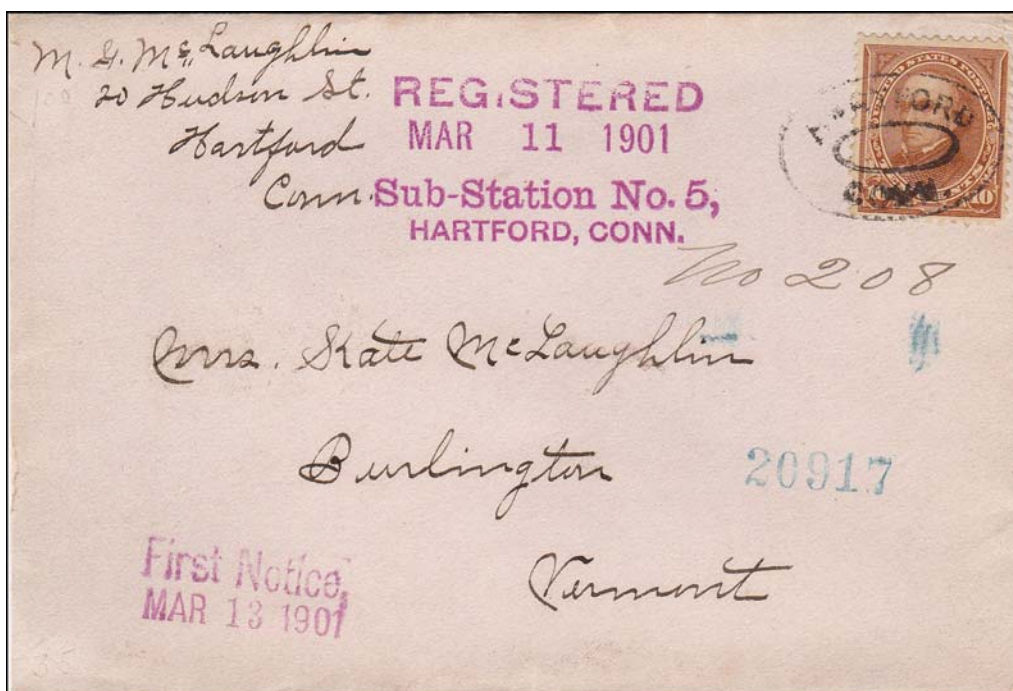 M. G. McLaughlin
20 Hudson St.
Hartford
Conn.
REGISTERED
MAR 11 1901
Sub-Station No. 5,
HARTFORD, CONN.
HARTFORD
CONN.
UNITED STATES
10
No 208
Mrs. Kate McLaughlin
Burlington
20917
Vermont
First Notice,
MAR 13 1901